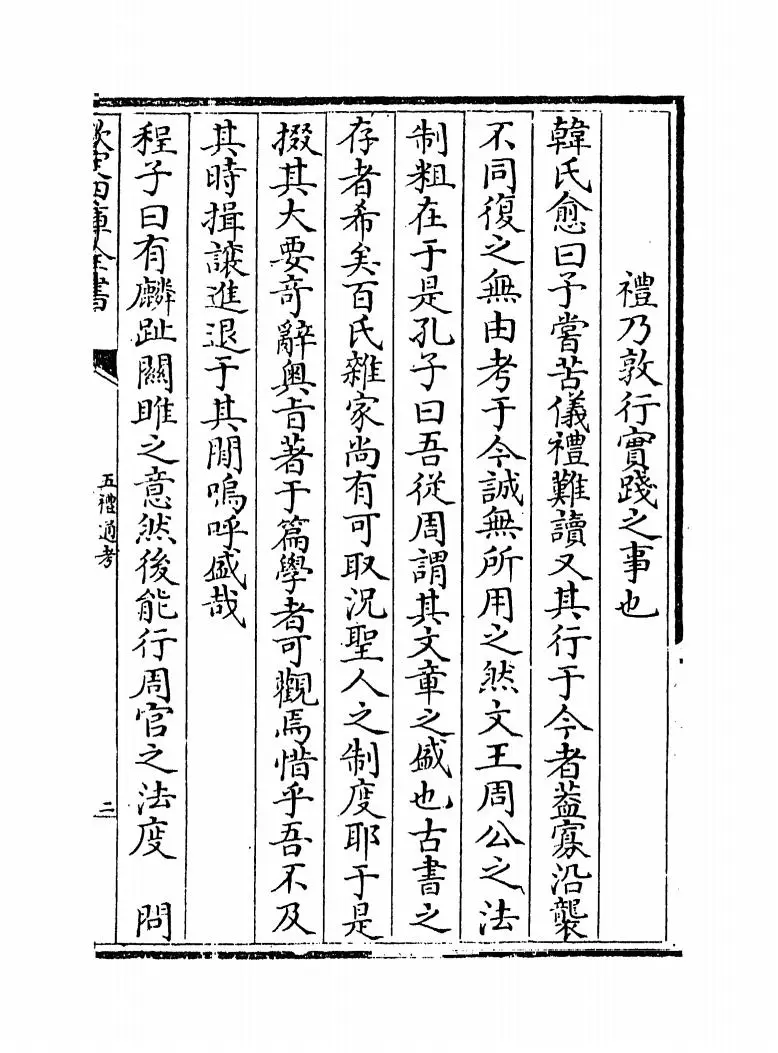 禮乃敦行實踐之事也
韓氏愈曰予嘗苦儀禮難讀又其行于今者葢寡沿襲
不同復之無由考于今誠無所用之然文王周公之法
制粗在于是孔子曰吾從周謂其文章之盛也古書之
存者希矣百氏雜家尚有可取況聖人之制度耶于是
掇其大要竒辭奧旨著于篇學者可觀焉惜乎吾不及
其時揖讓進退于其閒嗚呼盛哉
程子曰有麟趾關雎之意然後能行周官之法度　問
欽定四庫全書
五禮通考
二